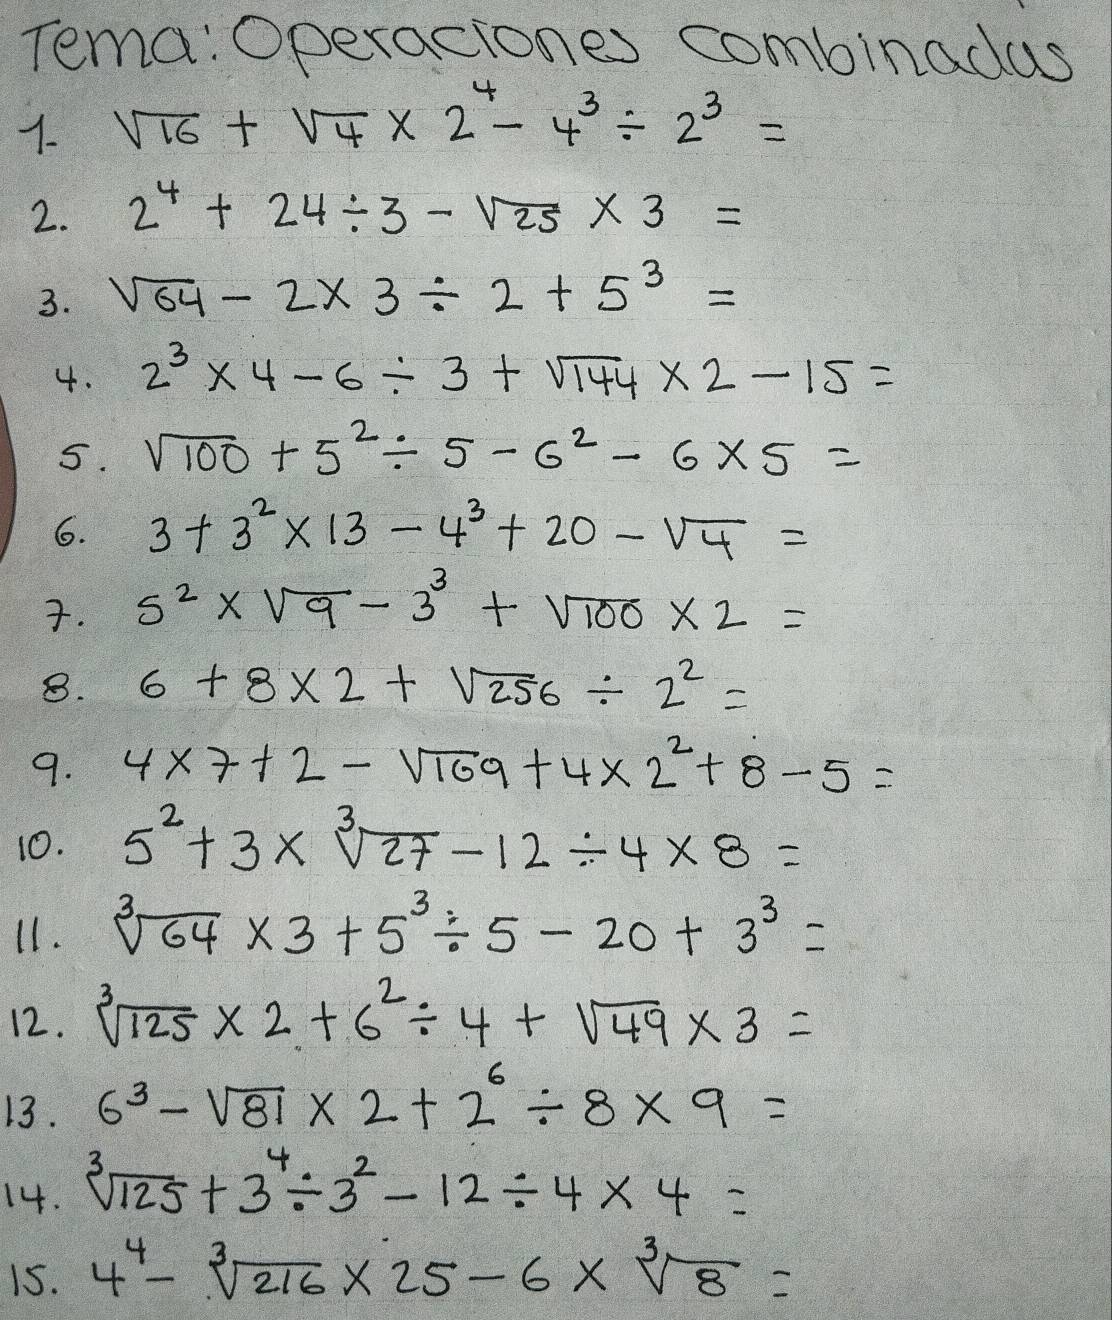 Tema: Operaciones combinadas
1. √16 + √4 × 2⁴ - 4³ ÷ 2³ =
2. 2⁴ + 24 ÷ 3 - √25 × 3 =
3. √64 - 2 × 3 ÷ 2 + 5³ =
4. 2³ × 4 - 6 ÷ 3 + √144 × 2 - 15 =
5. √100 + 5² ÷ 5 - 6² - 6 × 5 =
6. 3 + 3² × 13 - 4³ + 20 - √4 =
7. 5² × √9 - 3³ + √100 × 2 =
8. 6 + 8 × 2 + √256 ÷ 2² =
9. 4 × 7 + 2 - √169 + 4 × 2² + 8 - 5 =
10. 5² + 3 × ³√27 - 12 ÷ 4 × 8 =
11. ³√64 × 3 + 5³ ÷ 5 - 20 + 3³ =
12. ³√125 × 2 + 6² ÷ 4 + √49 × 3 =
13. 6³ - √81 × 2 + 2⁶ ÷ 8 × 9 =
14. ³√125 + 3⁴ ÷ 3² - 12 ÷ 4 × 4 =
15. 4⁴ - ³√216 × 25 - 6 × ³√8 =